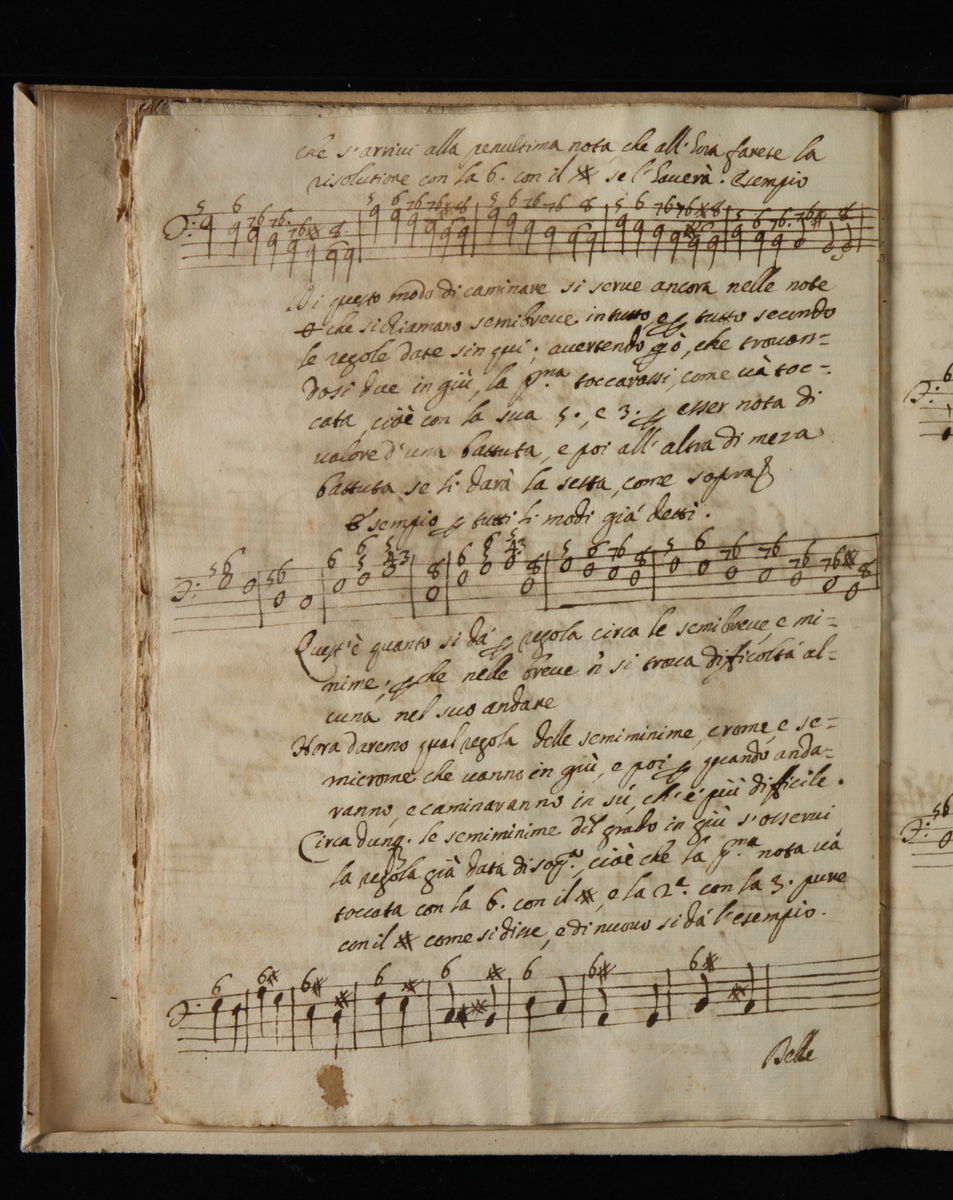 che s'arrivi alla penultima nota, che all'hora farete la
risolutione con la 6. con il # se l'hauerà. Esempio
Di questo modo di caminare si serue ancora nelle note
che si chiamano semibreue in tutto e ꝑ tutto secondo
le regole date sin quì; auertendo ꝑò, che trouan=
dosi due in giù, la p.ma toccarassi, come uà toc=
cata, cioè con la sua 5., e 3. ꝑ esser nota di
ualore d'una battuta, e poi all'altra di meza
battuta se li darà la sesta, come sopra
Esempio ꝑ tutti li modi già detti.
Quest'è quanto si dà ꝑ regola circa le semibreue, e mi=
nime; ꝑche nelle breue ñ si troua difficoltà al=
cuna nel suo andare
Hora daremo qual regola delle semiminime, crome, e se=
microme che uanno in giù, e poi ꝑ quando anda=
ranno, e caminaranno in sù, ch'è più difficile.
Circa dunq. le semiminime dil grado in giù s'osserui
la regola già data di sop.a, cioè che la p.ma nota uà
toccata con la 6. con il #, e la 2.a con la 3. pure
con il # come si disse, e di nuouo si dà l'esempio.
6 6# 6# # 6 # 6 # # 6 6# 6# #
Delle